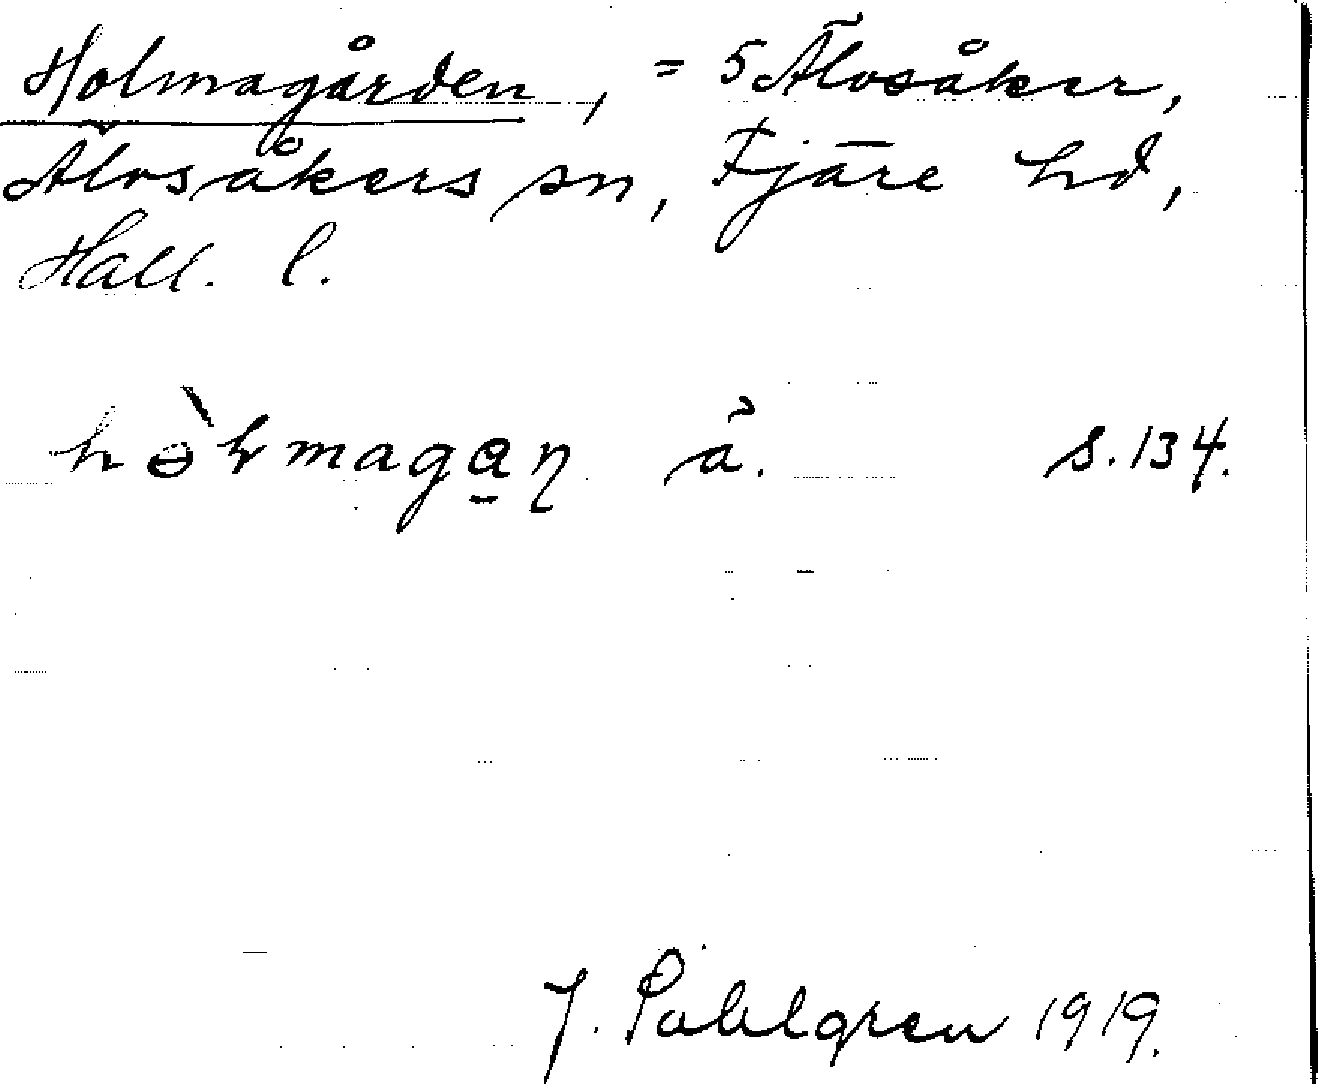 Holmagården, = 5 Älvsåker,
Älvsåkers sn, Fjäre hd,
Hall. l.
å. s. 134.
J. Pahlgren 1919.